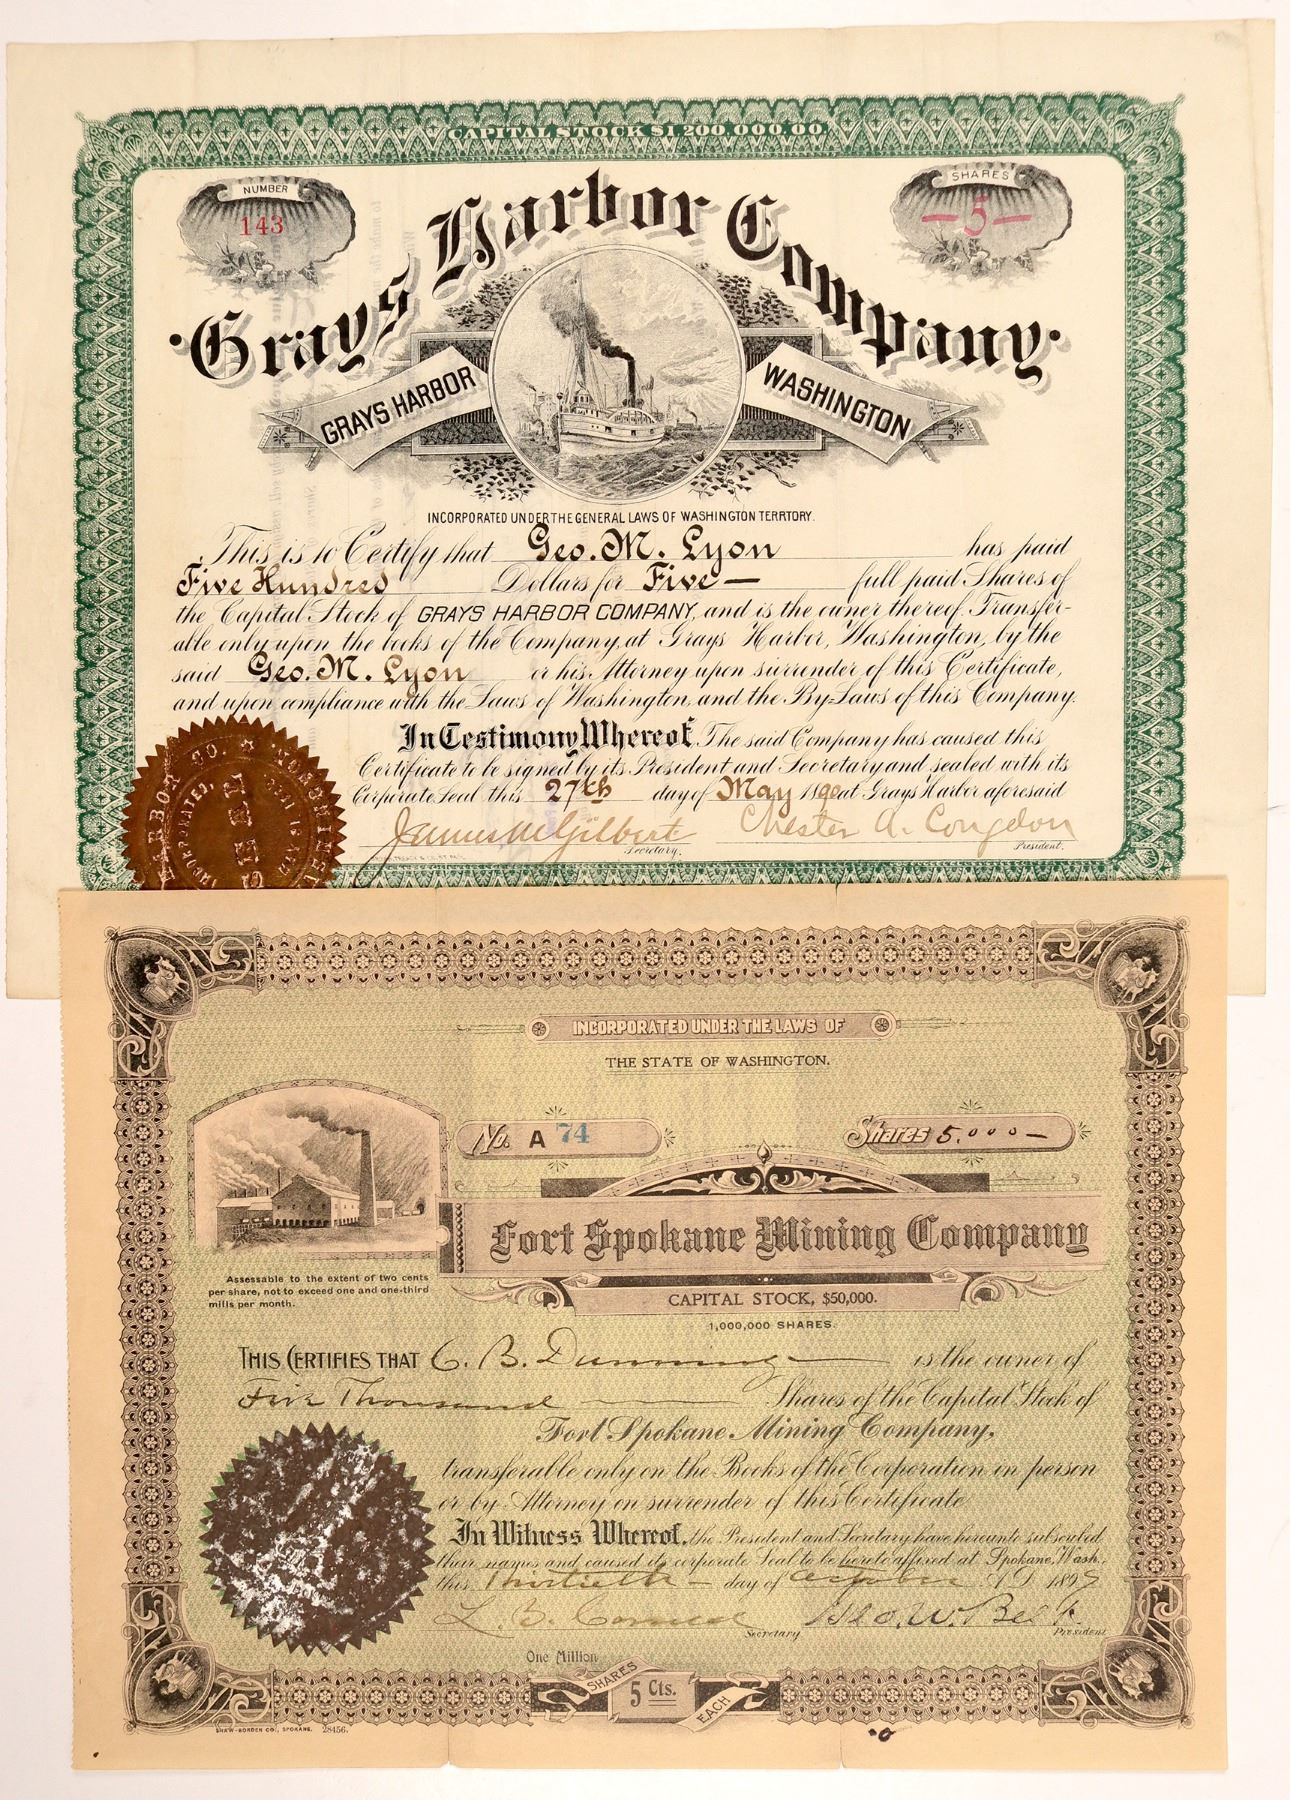 CAPITAL STOCK $1,200,000.00.
NUMBER
143
SHARES
—5—
Grays Harbor Company
GRAYS HARBOR
WASHINGTON
INCORPORATED UNDER THE GENERAL LAWS OF WASHINGTON TERRTORY.
This is to Certify that Geo. M. Lyon has paid
Five Hundred Dollars for Five — full paid Shares of
the Capital Stock of GRAYS HARBOR COMPANY, and is the owner thereof. Transfer-
able only upon the books of the Company, at Grays Harbor, Washington, by the
said Geo. M. Lyon or his Attorney upon surrender of this Certificate,
and upon compliance with the Laws of Washington, and the By-Laws of this Company.
In Testimony Whereof, The said Company has caused this
Certificate to be signed by its President and Secretary and sealed with its
Corporate Seal this 27th day of May 1890 at Grays Harbor aforesaid
James M Gilbert Chester A. Congdon
Secretary. President.
HARBOR CO.
SEAL
INCORPORATED UNDER THE LAWS OF
THE STATE OF WASHINGTON.
No. A 74
Shares 5.000—
Fort Spokane Mining Company
Assessable to the extent of two cents
per share, not to exceed one and one-third
mills per month.
CAPITAL STOCK, $50,000.
1,000,000 SHARES.
THIS CERTIFIES THAT C. B. Dunning is the owner of
Five Thousand Shares of the Capital Stock of
Fort Spokane Mining Company,
transferable only on the Books of the Corporation in person
or by Attorney on surrender of this Certificate
In Witness Whereof, the President and Secretary have hereunto subscribed
their names and caused its corporate Seal to be hereto affixed at Spokane, Wash.,
this Thirtieth — day of October A.D. 1897
L. B. Geo. W. Belt
Secretary President
One Million
SHARES
5 Cts.
EACH
SHAW-BORDEN CO., SPOKANE. 28456.